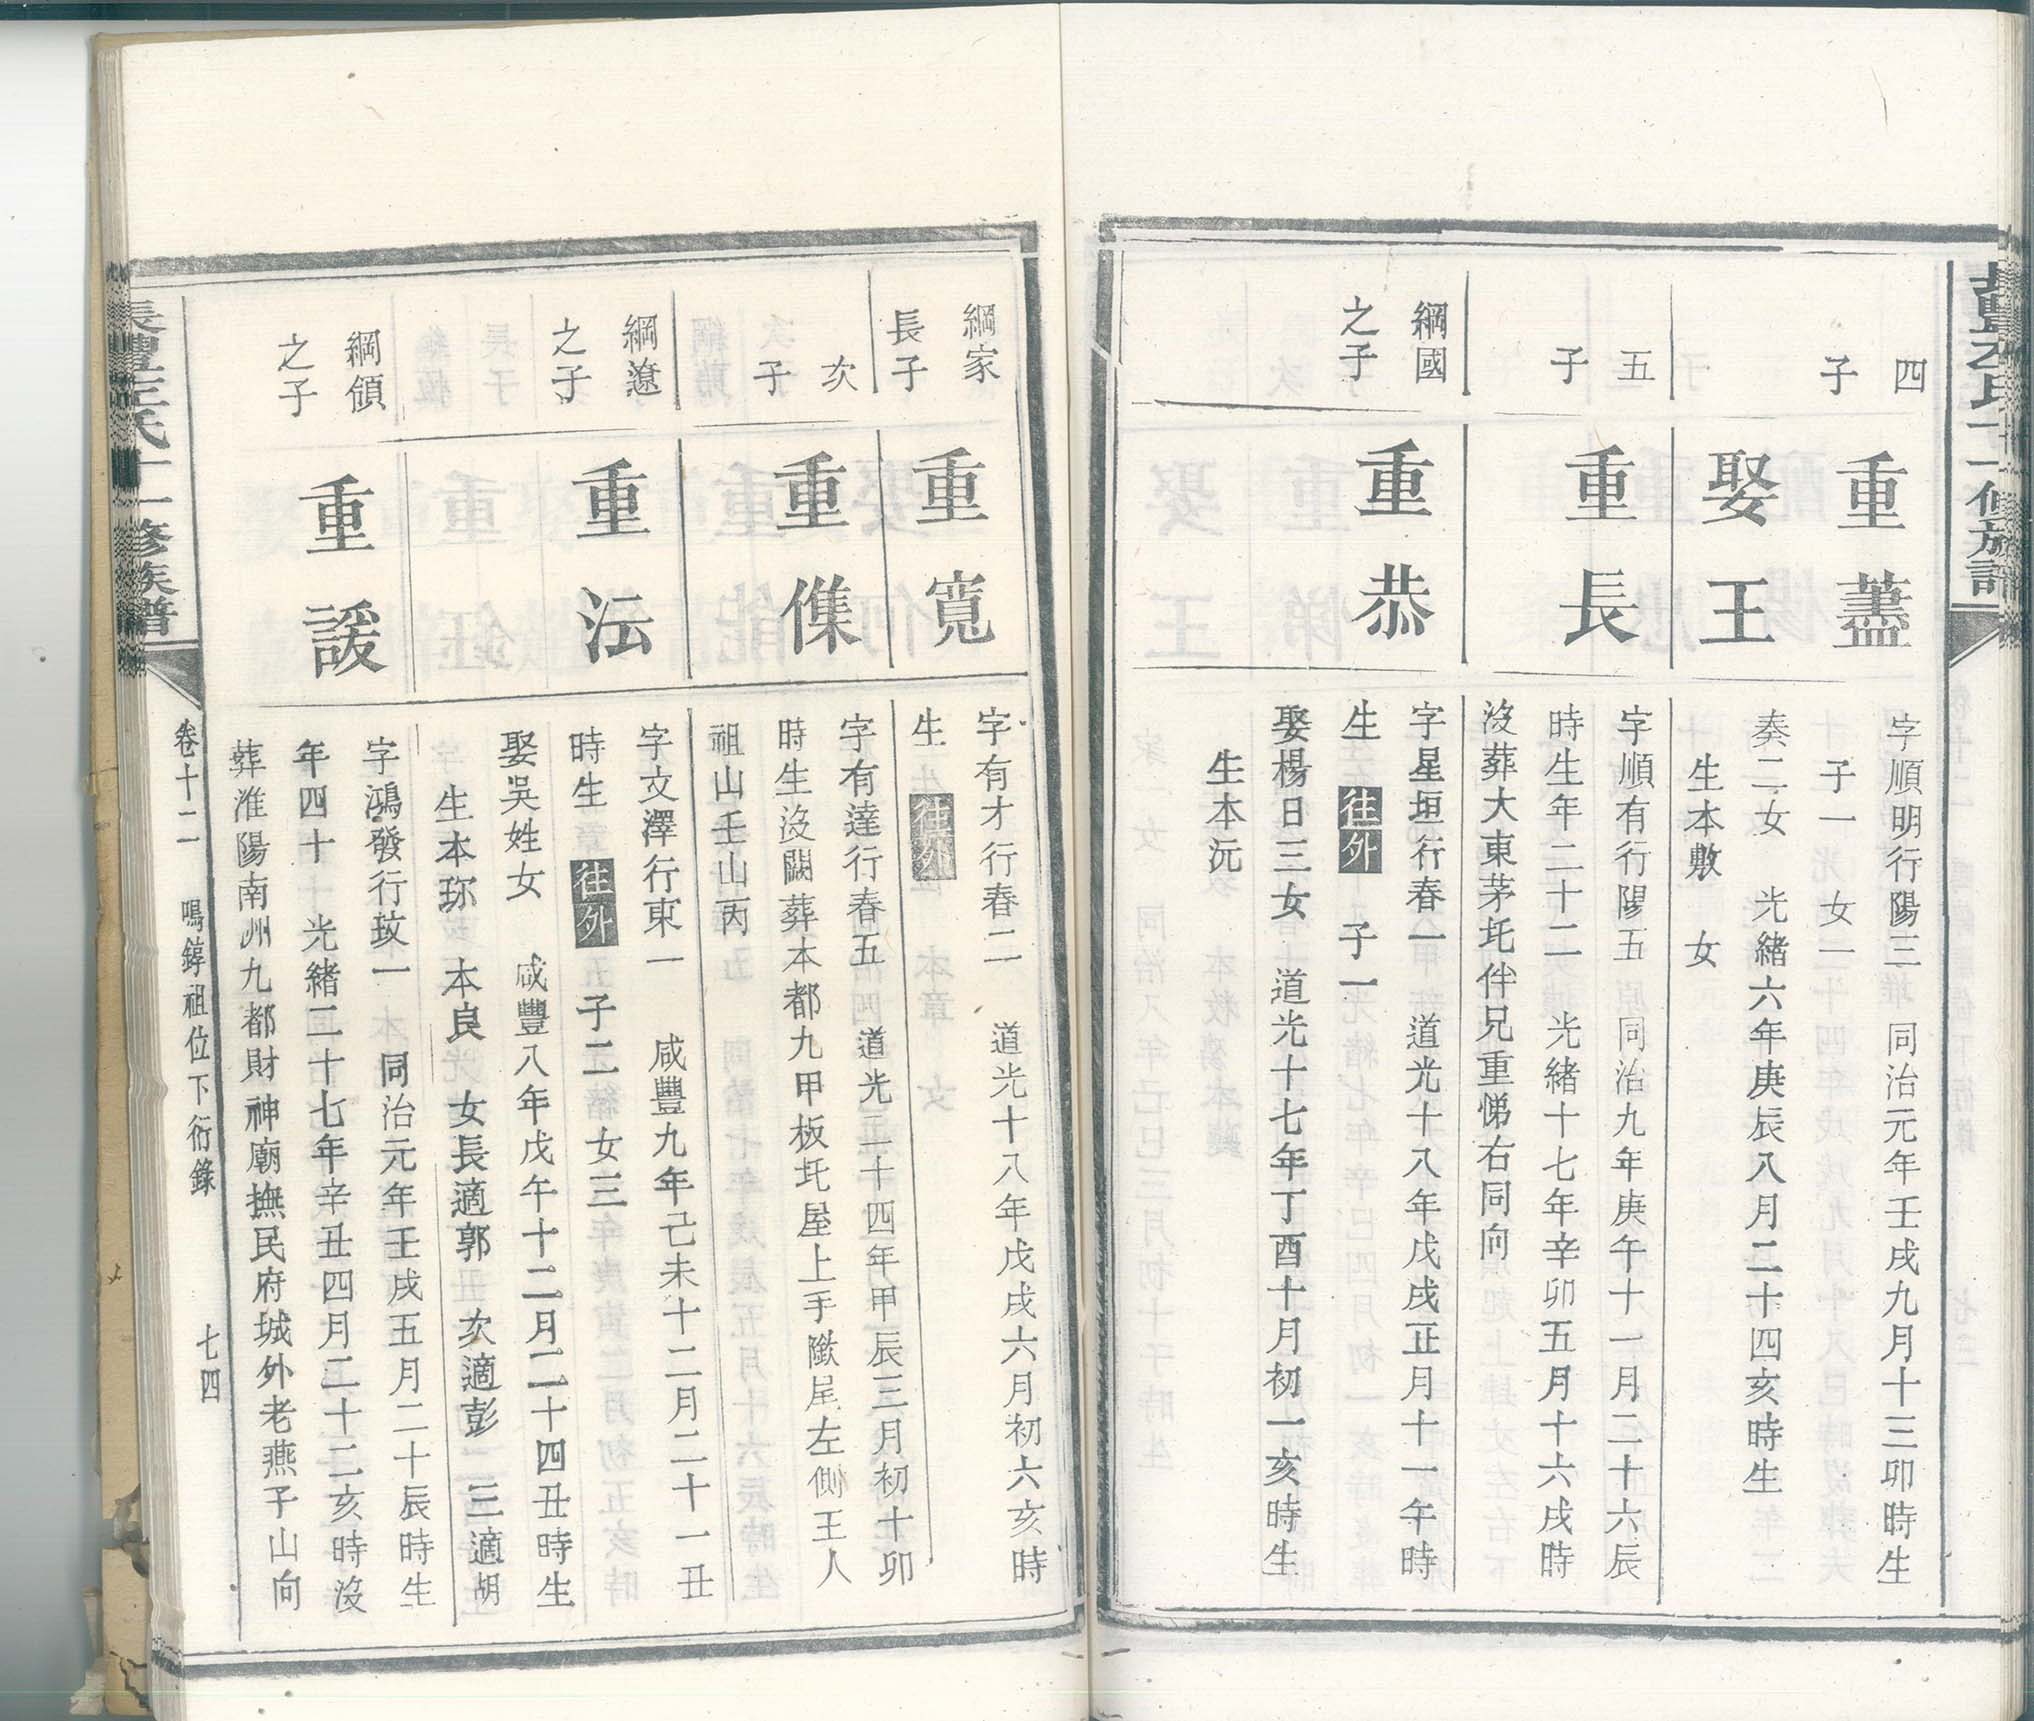 四
子
重藎
字順明行陽三 同治元年壬戌九月十三卯時生
子一 女一
娶王
奏二女 光緒六年庚辰八月二十四亥時生
生本敷 女
五
子
重長
字順有行陽五 同治九年庚午十一月二十六辰
時生年二十二 光緒十七年辛卯五月十六戌時
沒葬大東茅圫伴兄重悌右同向
綱國
之子
重恭
字星垣行春一 道光十八年戊戌正月十一午時
生 往外 子一
娶楊日三女 道光十七年丁酉十月初一亥時生
生本沅
綱家
長子
重寬
字有才行春二 道光十八年戊戌六月初六亥時
生 往外
次
子
重儁
字有達行春五 道光二十四年甲辰三月初十卯
時生沒闕葬本都九甲板圫屋上手隊尾左側王人
祖山壬山丙
綱遼
之子
重沄
字文澤行東一 咸豐九年己未十二月二十一丑
時生 往外 子二 女三
娶吳姓女 咸豐八年戊午十二月二十四丑時生
生本珎 本良 女長適郭 次適彭 三適胡
綱頎
之子
重諼
字鴻發行玟一 同治元年壬戌五月二十辰時生
年四十 光緒二十七年辛丑四月二十二亥時沒
葬淮陽南州九都財神廟撫民府城外老燕子山向
長豐左氏十一修族譜
卷十二 鳴錞祖位下衍錄 七四